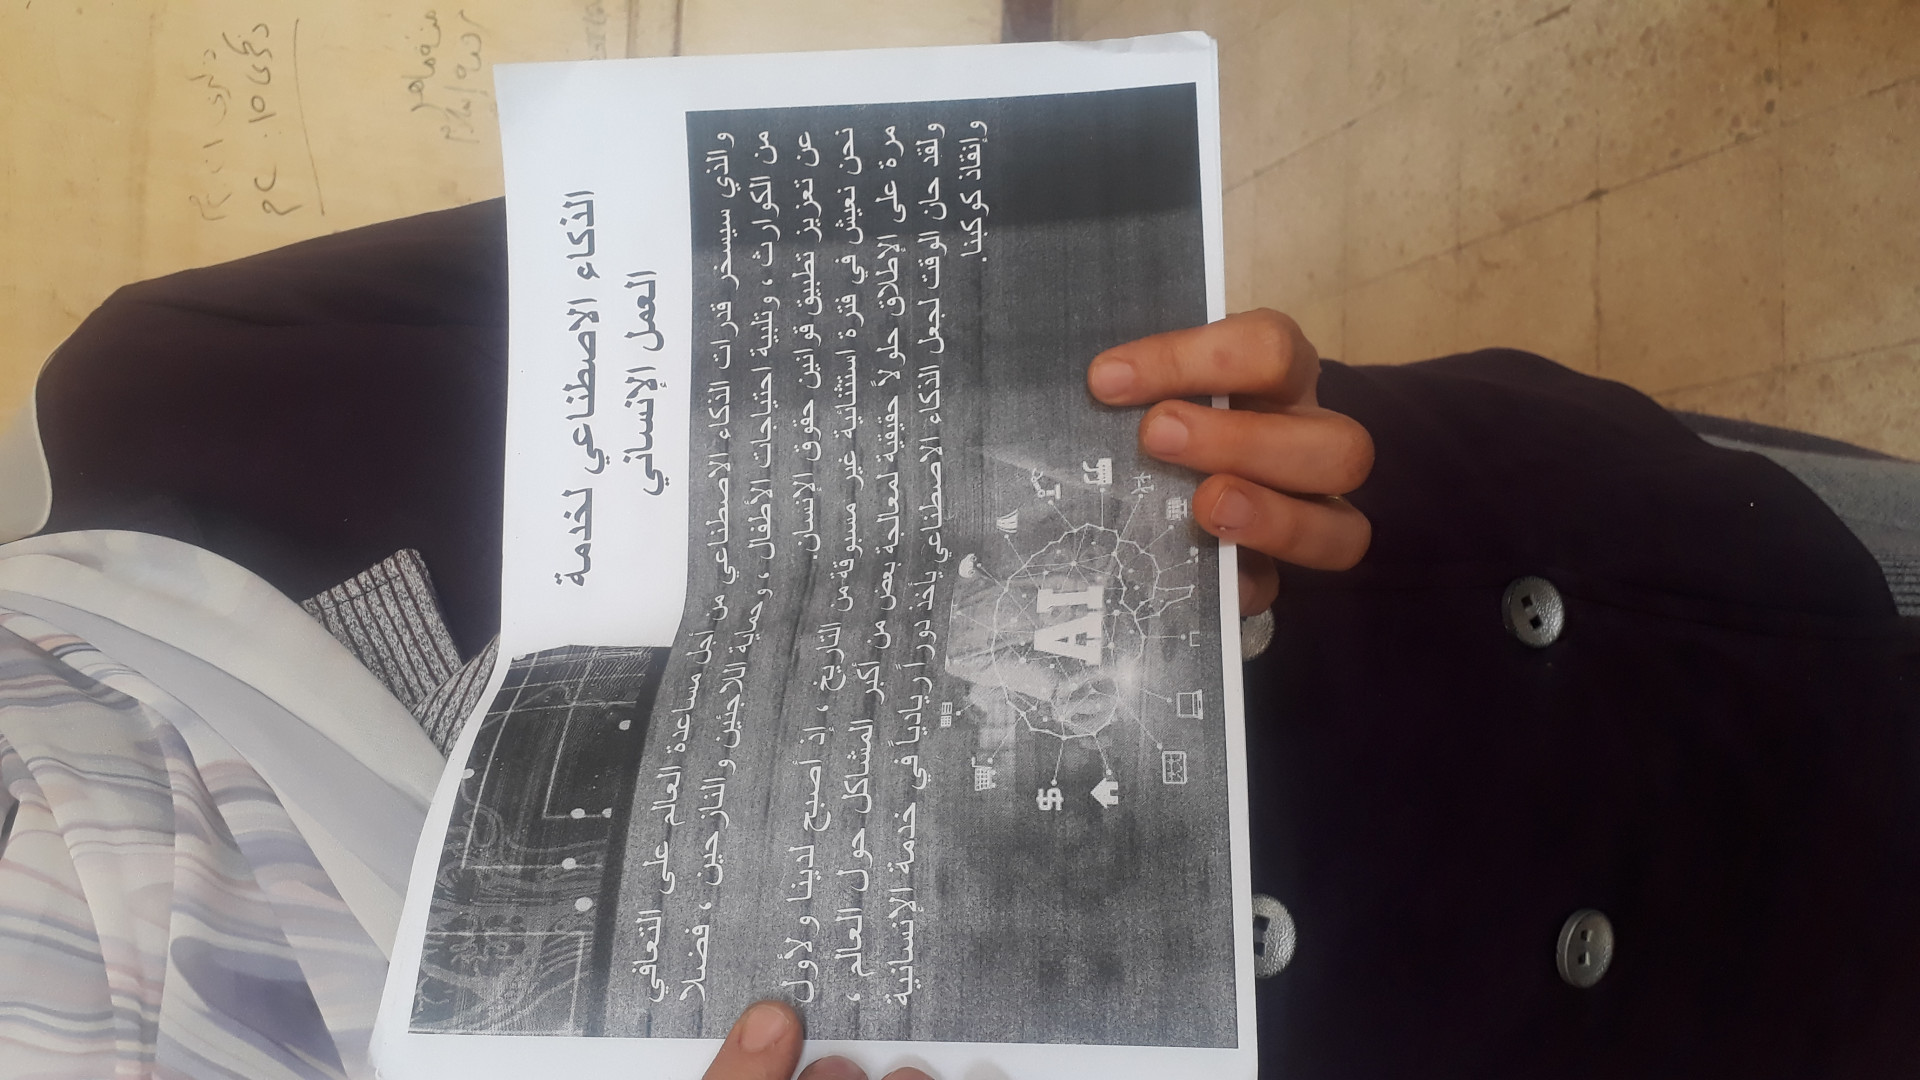 الذكاء الاصطناعي لخدمة
العمل الإنساني
والذي سيسخر قدرات الذكاء الاصطناعي من أجل مساعدة العالم على التعافي
من الكوارث ، وتلبية احتياجات الأطفال ، وحماية اللاجئين والنازحين ، فضلا
عن تعزيز تطبيق قوانين حقوق الانسان.
نحن نعيش في فترة استثنائية غير مسبوقة من التاريخ ، إذ أصبح لدينا ولأول
مرة على الإطلاق حلولاً حقيقية لمعالجة بعض من أكبر المشاكل حول العالم ،
ولقد حان الوقت لجعل الذكاء الاصطناعي يأخذ دوراً ريادياً في خدمة الإنسانية
وإنقاذ كوكبنا.
AI
$